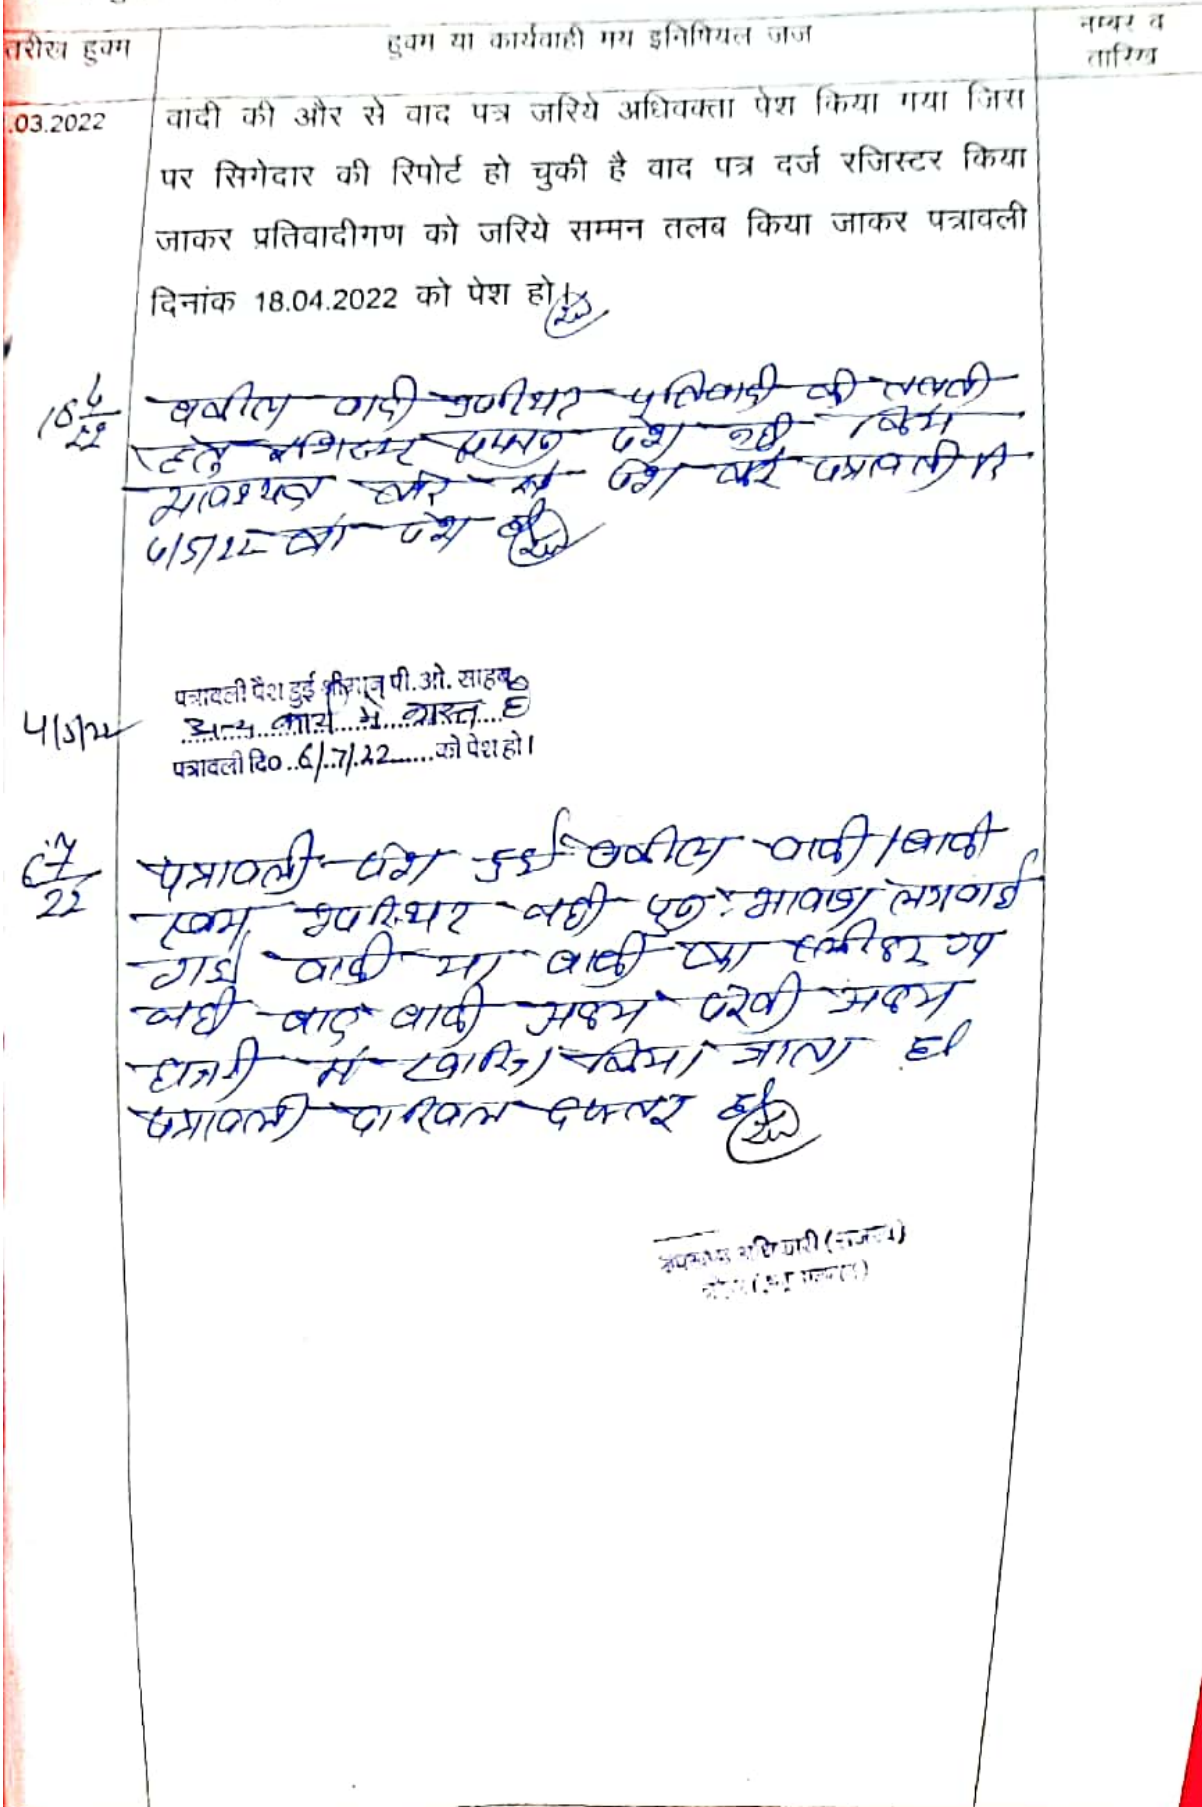 तारीख हुक्म
हुक्म या कार्यवाही मय इनिषियल जज
नम्बर व
तारिख
.03.2022
वादी की और से वाद पत्र जरिये अधिवक्ता पेश किया गया जिस
पर सिगेदार की रिपोर्ट हो चुकी है वाद पत्र दर्ज रजिस्टर किया
जाकर प्रतिवादीगण को जरिये सम्मन तलब किया जाकर पत्रावली
दिनांक 18.04.2022 को पेश हो।
18/4/22
वकील वादी उपस्थित प्रतिवादी की तलबी
हेतु रजिस्टर्ड सम्मन पेश नही किये
आवश्यक रूप से पेश करें पत्रावली दि
4/5/22 को पेश हो
4/5/22
पत्रावली पेश हुई श्रीमान् पी.ओ. साहब
अन्य कार्य में व्यस्त है
पत्रावली दि0 ..6/.7/.22......को पेश हो।
6/7/22
पत्रावली पेश हुई वकील वादी / वादी
स्वयं उपस्थित नही पुनः आवाज लगवाई
गई वादी या वादी का
नही वाद वादी अदम पैरवी अदम
हाजरी में खारिज किया जाता है
पत्रावली दाखिल दफ्तर हो
उपखण्ड अधिकारी (राजस्व)